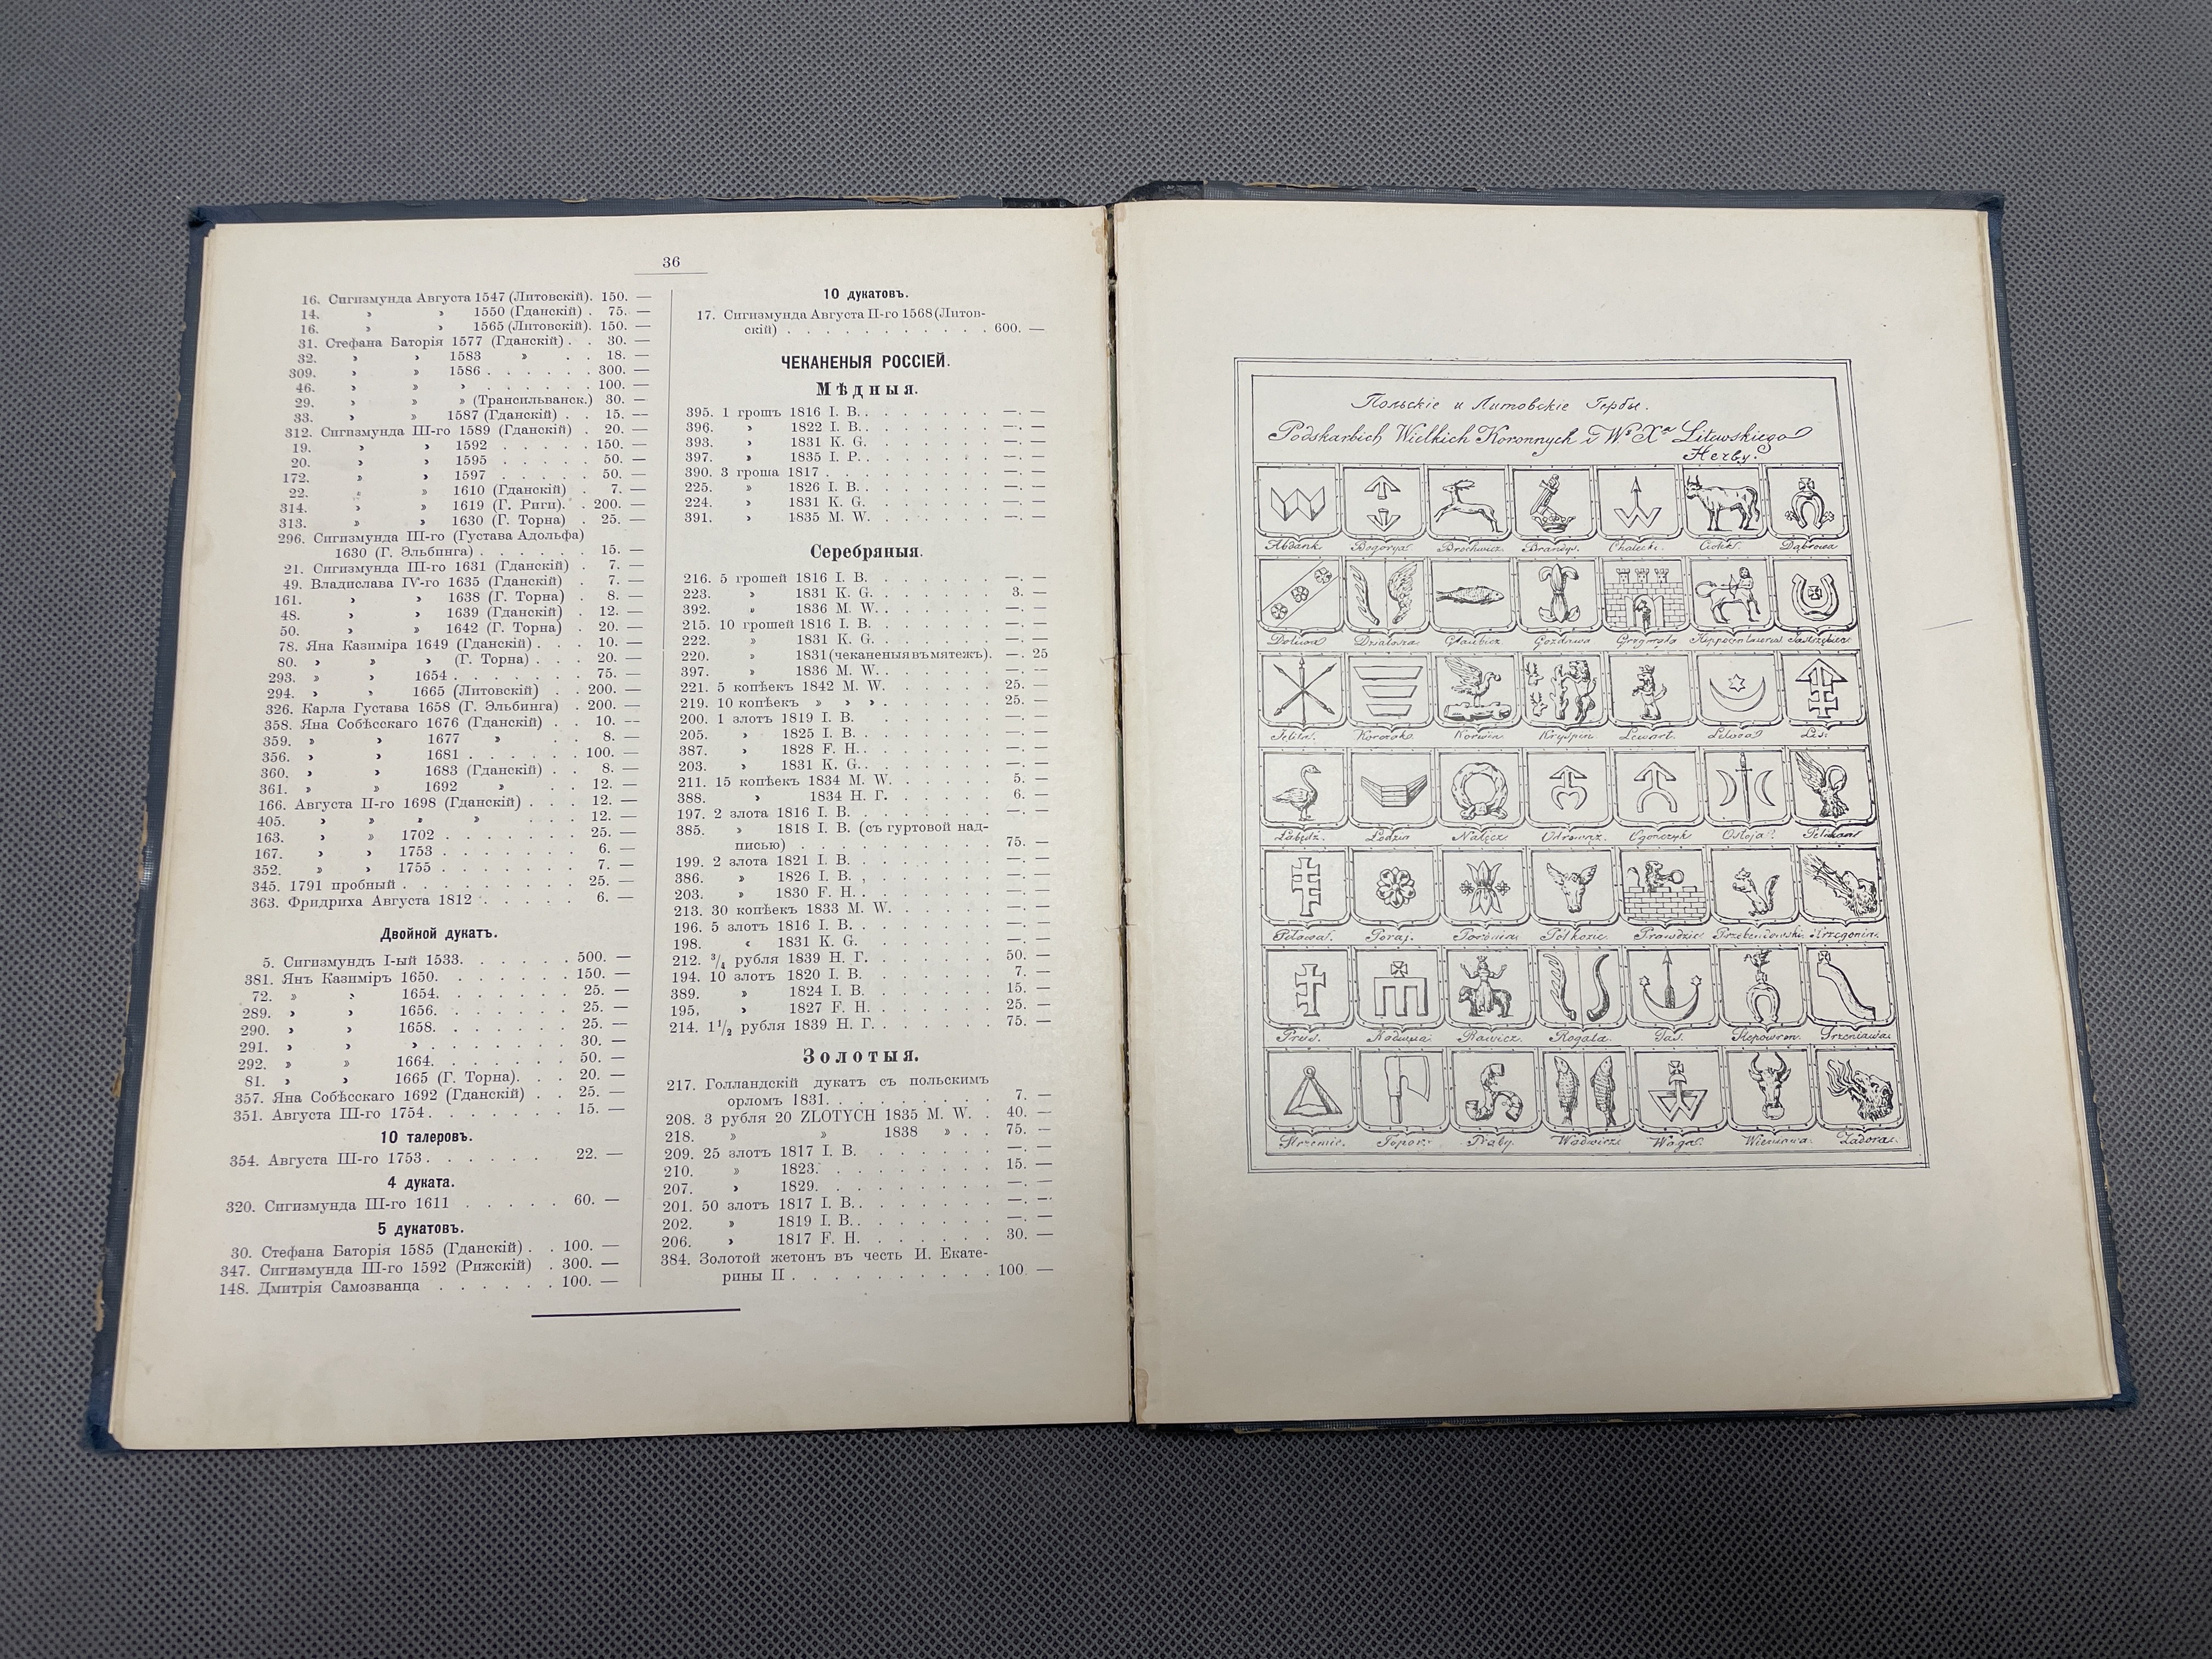 36
16. Сигизмунда Августа 1547 (Литовскій). 150. —
14. » » 1550 (Гданскій) . 75. —
16. » » 1565 (Литовскій). 150. —
31. Стефана Баторія 1577 (Гданскій) . . 30. —
32. » » 1583 » . . 18. —
309. » » 1586 . . . . . . 300. —
46. » » » . . . . . . 100. —
29. » » » (Трансильванск.) 30. —
33. » » 1587 (Гданскій) . . 15. —
312. Сигизмунда III-го 1589 (Гданскій) . 20. —
19. » » 1592 . . . . . 150. —
20. » » 1595 . . . . . 50. —
172. » » 1597 . . . . . 50. —
22. » » 1610 (Гданскій) . 7. —
314. » » 1619 (Г. Риги). . 200. —
313. » » 1630 (Г. Торна) . 25. —
296. Сигизмунда III-го (Густава Адольфа)
1630 (Г. Эльбинга) . . . . . . 15. —
21. Сигизмунда III-го 1631 (Гданскій) . 7. —
49. Владислава IV-го 1635 (Гданскій) . 7. —
161. » » 1638 (Г. Торна) . 8. —
48. » » 1639 (Гданскій) . 12. —
50. » » 1642 (Г. Торна) . 20. —
78. Яна Казиміра 1649 (Гданскій) . . . 10. —
80. » » » (Г. Торна) . . . 20. —
293. » » 1654 . . . . . . 75. —
294. » » 1665 (Литовскій) . . 200. —
326. Карла Густава 1658 (Г. Эльбинга) . 200. —
358. Яна Собѣсскаго 1676 (Гданскій) . . 10. —
359. » » 1677 » . . 8. —
356. » » 1681 . . . . . 100. —
360. » » 1683 (Гданскій) . . 8. —
361. » » 1692 » . . 12. —
166. Августа II-го 1698 (Гданскій) . . . 12. —
405. » » » » . . . 12. —
163. » » 1702 . . . . . . . 25. —
167. » » 1753 . . . . . . . 6. —
352. » » 1755 . . . . . . . 7. —
345. 1791 пробный . . . . . . . . . 25. —
363. Фридриха Августа 1812 . . . . . 6. —
Двойной дукатъ.
5. Сигизмундъ I-ый 1533. . . . . . 500. —
381. Янъ Казиміръ 1650. . . . . . . 150. —
72. » » 1654. . . . . . . 25. —
289. » » 1656. . . . . . . 25. —
290. » » 1658. . . . . . . 25. —
291. » » » . . . . . . . 30. —
292. » » 1664. . . . . . . 50. —
81. » » 1665 (Г. Торна). . . 20. —
357. Яна Собѣсскаго 1692 (Гданскій) . . 25. —
351. Августа III-го 1754 . . . . . . . 15. —
10 талеровъ.
354. Августа III-го 1753 . . . . . . 22. —
4 дуката.
320. Сигизмунда III-го 1611 . . . . . 60. —
5 дукатовъ.
30. Стефана Баторія 1585 (Гданскій) . . 100. —
347. Сигизмунда III-го 1592 (Рижскій) . 300. —
148. Дмитрія Самозванца . . . . . . 100. —
10 дукатовъ.
17. Сигизмунда Августа II-го 1568 (Литов-
скій) . . . . . . . . . . . 600. —
ЧЕКАНЕНЫЯ РОССІЕЙ.
Мѣдныя.
395. 1 грошъ 1816 I. B. . . . . . . . —. —
396. » 1822 I. B. . . . . . . . —. —
393. » 1831 K. G. . . . . . . —. —
397. » 1835 I. P. . . . . . . . —. —
390. 3 гроша 1817 . . . . . . . . . —. —
225. » 1826 I. B. . . . . . . . —. —
224. » 1831 K. G. . . . . . . —. —
391. » 1835 M. W. . . . . . . —. —
Серебряныя.
216. 5 грошей 1816 I. B. . . . . . . —. —
223. » 1831 K. G. . . . . . . 3. —
392. » 1836 M. W. . . . . . . —. —
215. 10 грошей 1816 I. B. . . . . . . —. —
222. » 1831 K. G. . . . . . . —. —
220. » 1831 (чеканеныя въ мятежъ). —. 25
397. » 1836 M. W. . . . . . . —. —
221. 5 копѣекъ 1842 M. W. . . . . . 25. —
219. 10 копѣекъ » » » . . . . . . 25. —
200. 1 злотъ 1819 I. B. . . . . . . —. —
205. » 1825 I. B. . . . . . . —. —
387. » 1828 F. H. . . . . . . —. —
203. » 1831 K. G. . . . . . . —. —
211. 15 копѣекъ 1834 M. W. . . . . . 5. —
388. » 1834 Н. Г. . . . . . 6. —
197. 2 злота 1816 I. B. . . . . . . —. —
385. » 1818 I. B. (съ гуртовой над-
писью) . . . . . . . . . . 75. —
199. 2 злота 1821 I. B. . . . . . . —. —
386. » 1826 I. B. , . . . . . —. —
203. » 1830 F. H. . . . . . . —. —
213. 30 копѣекъ 1833 M. W. . . . . . —. —
196. 5 злотъ 1816 I. B. . . . . . . —. —
198. « 1831 K. G. . . . . . . —. —
212. ¾ рубля 1839 Н. Г. . . . . . . 50. —
194. 10 злотъ 1820 I. B. . . . . . . 7. —
389. » 1824 I. B. . . . . . . 15. —
195, » 1827 F. H. . . . . . . 25. —
214. 1½ рубля 1839 Н. Г. . . . . . . 75. —
Золотыя.
217. Голландскій дукатъ съ польскимъ
орломъ 1831. . . . . . . . . 7. —
208. 3 рубля 20 ZLOTYCH 1835 M. W. . . 40. —
218. » » 1838 » . . 75. —
209. 25 злотъ 1817 I. B. . . . . . . —. —
210. » 1823. . . . . . . . . 15. —
207. » 1829. . . . . . . . . —. —
201. 50 злотъ 1817 I. B. . . . . . . —. —
202. » 1819 I. B. . . . . . . —. —
206. » 1817 F. H. . . . . . . 30. —
384. Золотой жетонъ въ честь И. Екате-
рины II . . . . . . . . . . 100. —
Польскіе и Литовскіе Гербы.
Podskarbich Wielkich Koronnych i Wo Xa Litewskiego
Herby.
Abdank. Bogorya. Brochwicz. Brandys. Chalecki. Ciołek. Dąbrowa
Doliwa Drzaloza Glaubicz Gozdawa Grzymala Hippocentaurus Jastrzębiec
Jelita. Korczak. Korwin. Kryspin. Lewart. Leliwa Lis.
Łabędz. Łodzia Nalęcz Odrowąż. Ogonczyk Ostoja. Pelikan
Pilawa. Poraj. Poronia Półkozic. Prawdzic Przebendowski. Przegonia.
Prus. Radwan. Rawicz. Rogala. Sas. Slepowron. Srzeniawa.
Strzemie. Topor. Trąby. Wadwicz. Waga. Wieniawa. Zadora.